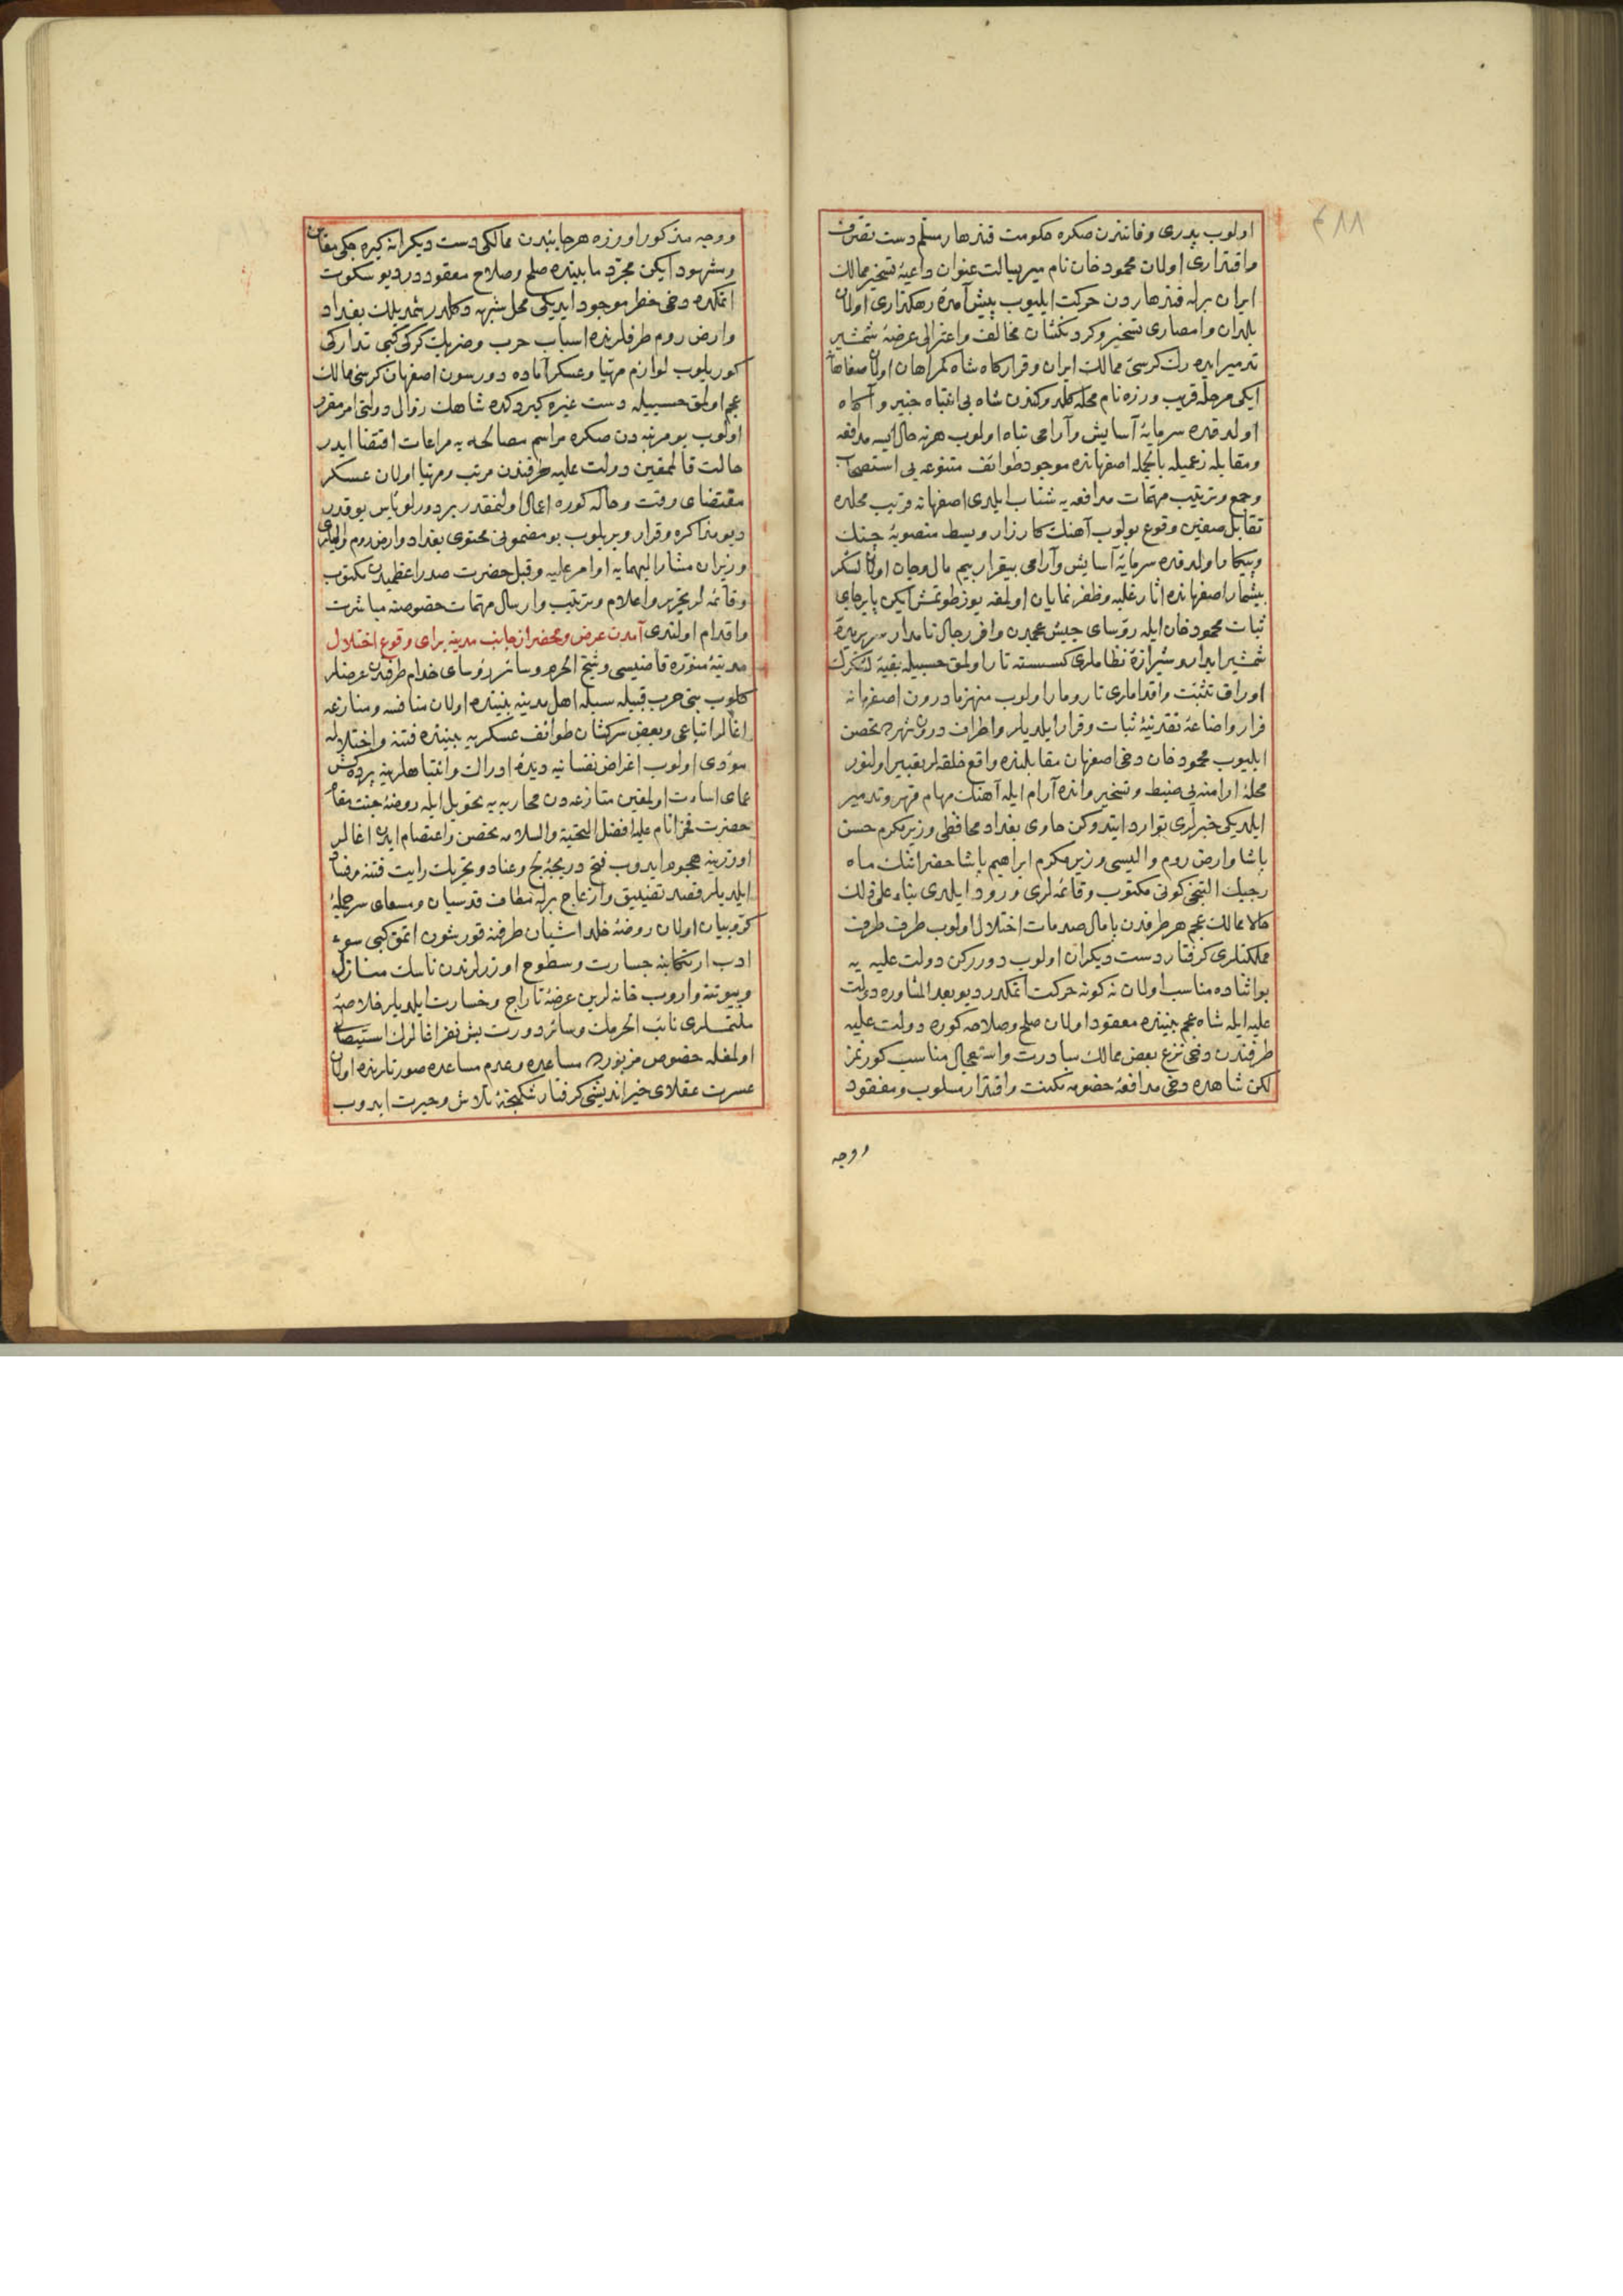 ٢٨٨
اولوب پدری وفاتندن صكره حكومت قندهار مسلم دست تصرف
واقتداری اولان محمود خان نام میر بسالت عنوان داعیهٔ تسخیر ممالك
ایران برله قندهاردن حركت ایلیوب پیش آمدۀ رهكذاری اولان
بلدان وامصاری تسخیر وكردنكشان مخالف واعتزالی عرضهٔ شمشیر
تدمیر ایده رك كرسیٔ ممالك ایران وقراركاه شاه كمراهان اولان صفاهانه
ایكی مرحله قریب ورزه نام محله كلدوكندن شاه بی انتباه خبیر وآكاه
اولدقده سرمایهٔ آسایش وآرامی تباه اولوب هر نه حال ایسه مدافعه
ومقابله زعمیله بالجمله اصفهانده موجود طوائف متنوعه یی استصحاب
وجمع وترتیب مهمات مدافعه یه شتاب ایلدی اصفهانه قریب محلده
تقابل صفین وقوع بولوب آهنك كارزار وبسط منصوبهٔ جنك
وپیكار اولدقده سرمایهٔ آسایش وآرامی بیقرار بیم مال وجان اولان لشكر
بیشمار اصفهانده اثار غلبه وظفر نمایان اولمغه یوز طوتمش ایكن پابرجای
ثبات محمود خان ایله رؤسای جیش عجمدن وافر رجال نامدار سربریدۀ
شمشیر ابدار وشیرازۀ نظاملری كسسته تار اولمق حسبیله بقیهٔ لشكرك
اوراق تثبت واقداملری تارومار اولوب منهزما درون اصفهانه
فرار واضاعهٔ نقدینهٔ ثبات وقرار ایلدیلر واطراف درون شهرده تحصن
ایلیوب محمود خان دخی اصفهان مقابلنده واقع خلقه لر تعبیر اولنور
محلهٔ ارامنه یی ضبط وتسخیر وانده آرام ایله آهنك مهام قهر وتدمیر
ایلدیكی خبرلری توارد ایتدوكن حاوی بغداد محافظی وزیر مكرم حسن
پاشا وارض روم والیسی وزیر مكرم ابراهیم پاشا حضراتنك ماه
رجبك التنجی كونی مكتوب وقائمه لری ورود ایلدی بناء علی ذلك
حالا ممالك عجم هر طرفدن پامال صدمات اختلال اولوب طرف طرف
مملكتلری كرفتار دست دیكران اولوب دوررركن دولت علیه یه
بو اثناده مناسب اولان نه كونه حركت اتمكدر دیو بعد المشاوره دولت
علیه ایله شاه عجم بیننده معقود اولان صلح وصلاحه كوره دولت علیه
طرفندن دخی نزع بعض ممالك مبادرت واستعجال مناسب كورنمز
لكن شاهده دخی مدافعهٔ خصومه مكنت واقتدار مسلوب ومفقود
ووجه
ووجه مذكور اوزره هر جانبدن ممالكی دست دیكرانه كیره جكی معاین
ومشهود ایكن مجرد مابینده صلح وصلاح معقوددر دیو سكوت
اتمكده دخی خطر موجود ایدیكی محل شبهه دكلدر شمدیلك بغداد
وارض روم طرفلرنده اسباب حرب وضربك كركی كبی تداركی
كوریلوب لوازم مهیا وعسكر آماده دورسون اصفهان كرسیٔ ممالك
عجم اولمق حسبیله دست غیره كیردكده شاهك زوال دولتی امر مقرر
اولوب بو مرتبه دن صكره مراسم مصالحه یه مراعات اقتضا ایدر
حالت قالمغین دولت علیه طرفندن مرتب ومهیا اولان عسكر
مقتضای وقت وحاله كوره اعمال اولنمقدر بر دورلو بأس یوقدر
دیو مذاكره وقرار ویریلوب بو مضمونی محتوی بغداد وارض روم والیلری
وزیران مشار الیهمایه اوامر علیه وقبل حضرت صدر اعظمیدن مكتوب
وقائمه لر تحریر واعلام وترتیب وارسال مهمات خصوصنه مباشرت
واقدام اولندی آمدن عرض ومحضر از جانب مدینه برای وقوع اختلال
مدینهٔ منوره قاضیسی وشیخ الحرم وسائر رؤسای خدام طرفندن عرضلر
كلوب بنی حرب قبیله سیله اهل مدینه بیننده اولان منافسه ومنازعه
اغالر اتباعی وبعض سركشان طوائف عسكریه بیننده فتنه واختلاله
مؤدی اولوب اغراض نفسانیه دیدۀ ادراك وانتباهلرینه پرده كش
عمای اساءت اولمغین منازعه دن محاربه یه تحویل ایله روضهٔ جنت مقام
حضرت فخر انام علیه افضل التحیة والسلامه تحصن واعتصام ایدن اغالر
اوزرینه هجوم ایدوب فتح دریچهٔ لج وعناد وتحریك رایت فتنه وفساد
ایلدیلر قصد تضییق وازعاج برله مطاف قدسیان ومسعای سرجملهٔ
كروبیان اولان روضهٔ خلد اشیان طرفنه قورشون اتمق كبی سوء
ادب ارتكابنه جسارت وسطوح اوزرلرندن ناسك منازل
وبیوتنه واروب خانه لرین عرضهٔ تاراج وخسارت ایلدیلر خلاصهٔ
ملتمسلری نائب الحرمك وسائر دورت بش نفر اغالرك استیصالی
اولمغله خصوص مزبورده مساعده وعدم مساعده صورتلرنده اولان
عسرت عقلای خیراندیشی كرفتار شكنجهٔ تلاش وحیرت ایدوب